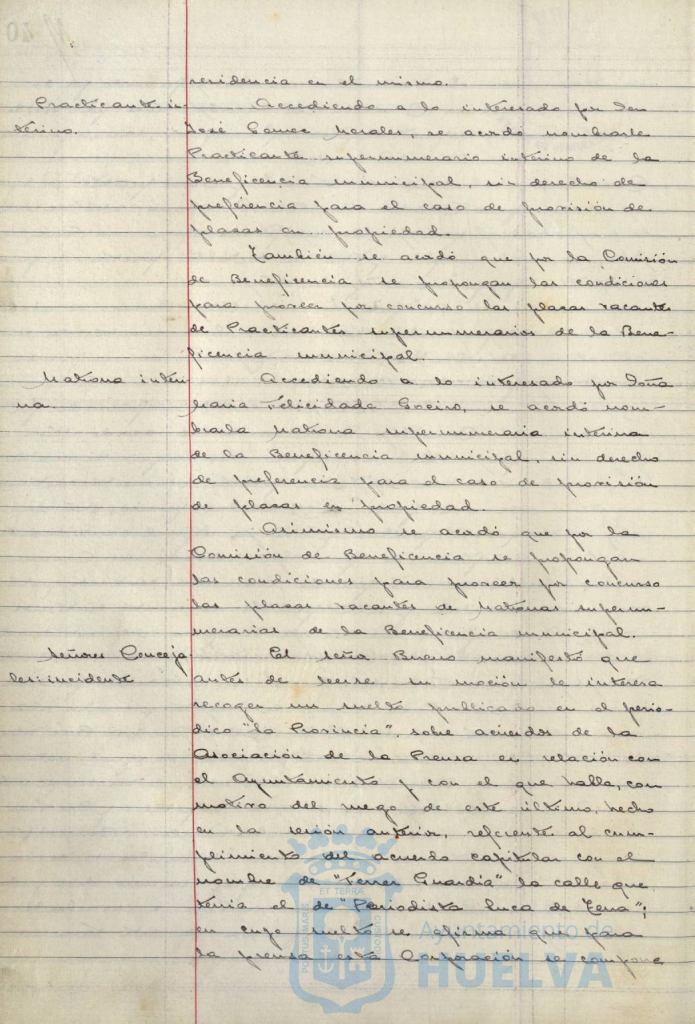 residencia en el mismo.
Practicante in-
terino.
Accediendo a lo interesado por Don
José Gomez Morales, se acordó nombrarle
Practicante supernumerario interino de la
Beneficencia municipal, sin derecho de
preferencia para el caso de provisión de
plazas en propiedad.
También se acordó que por la Comisión
de Beneficencia se propongan las condiciones
para proveer por concurso las plazas vacantes
de Practicantes supernumerarios de la Bene-
ficencia municipal.
Matrona interi-
na.
Accediendo a lo interesado por Doña
Maria Felicidade Soeiro, se acordó nom-
brarla Matrona supernumeraria interina
de la Beneficencia municipal, sin derecho
de preferencia para el caso de provisión
de plazas en propiedad.
Asimismo se acordó que por la
Comisión de Beneficencia se propongan
las condiciones para proveer por concurso
las plazas vacantes de Matronas supernu-
merarias de la Beneficencia municipal.
Señores Conceja
les: incidente
El señor Bueno manifestó que
antes de leerse su moción le interesa
recoger un suelto publicado en el perió-
dico "La Provincia", sobre acuerdos de la
Asociación de la Prensa en relación con
el Ayuntamiento y con el que habla, con
motivo del ruego de este último, hecho
en la sesión anterior, referente al cum-
plimiento del acuerdo capitular con el
nombre de "Ferrer Guardia" la calle que
tenia el de "Periodista Luca de Tena";
en cuyo suelto se afirma que para
la prensa esta Corporación se compone
PORTUS MARIS ET TERRAE CUSTODIA
Ayuntamiento de
HUELVA